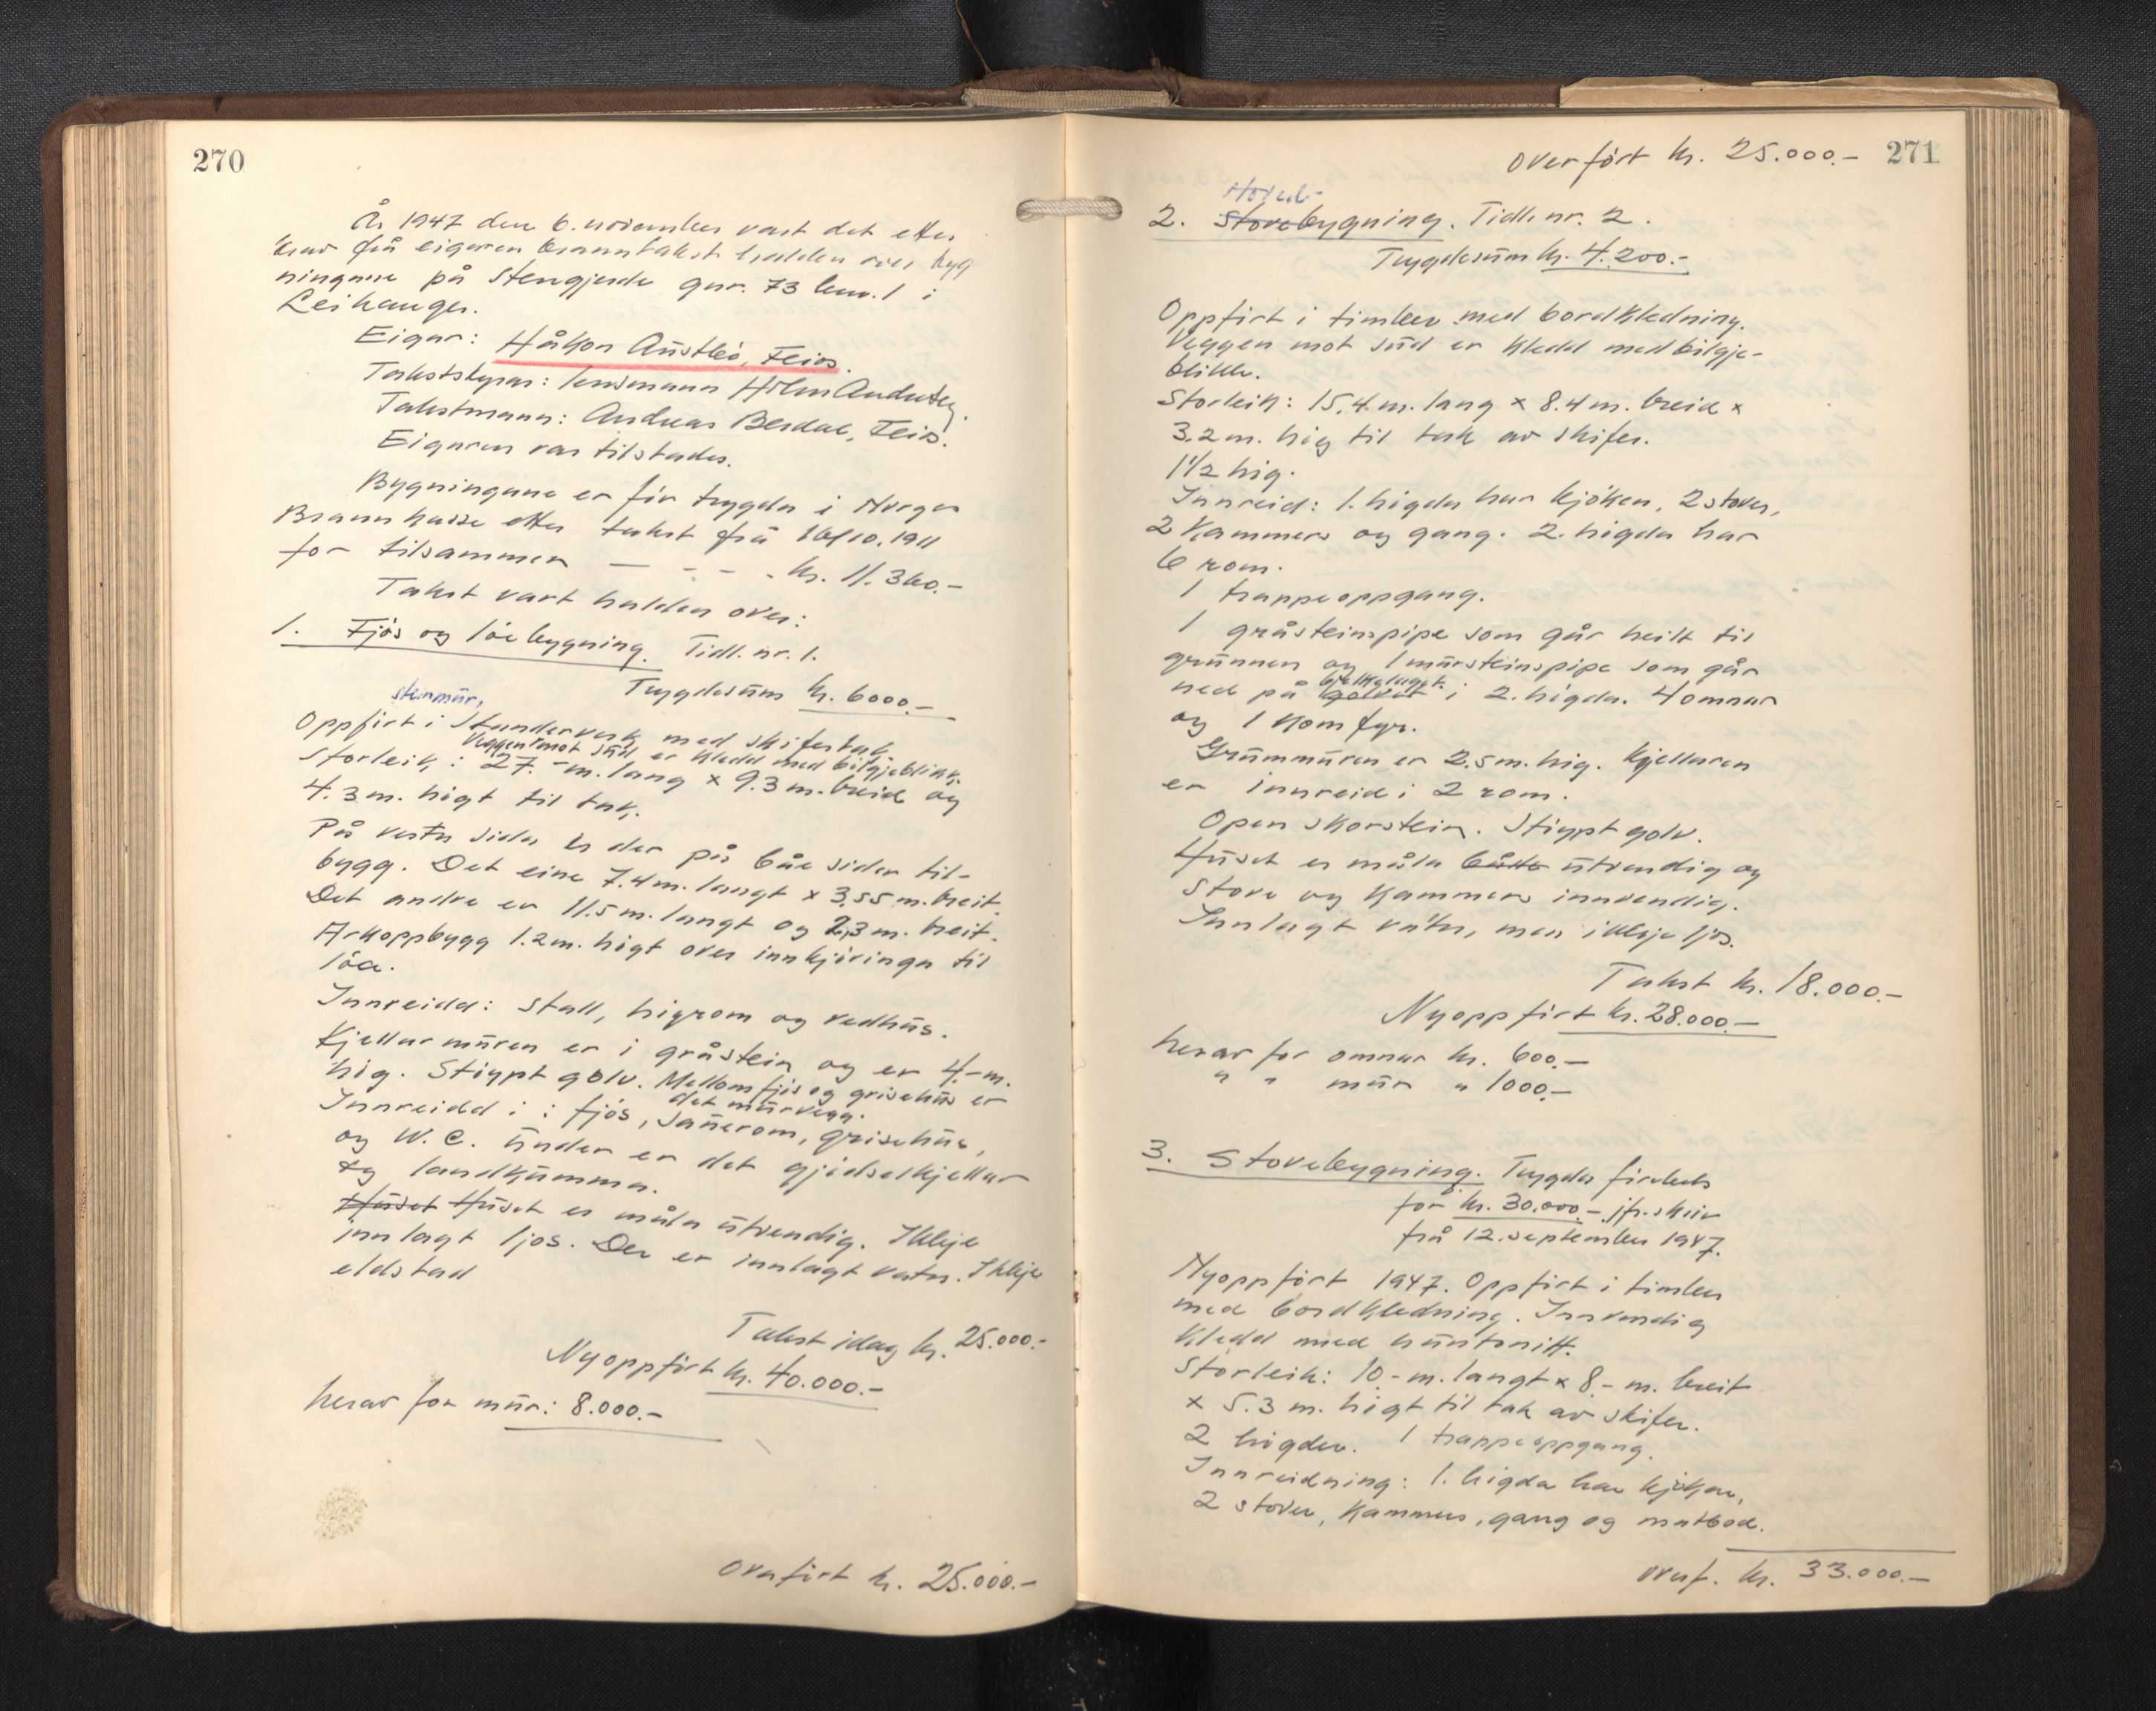 270
År 1947 den 6. november vart det etter
krav frå eigaren branntakst halden over byg
ningane på Stengjerde gnr. 73 bnr. 1 i
Leikanger.
Eigar: Håkon Austbö, Feios.
Takstskynar: lensmann
Takstmann: Andreas Berdal, Feios.
Eigaren var tilstades.
Bygningane er för trygda i Norges
Brannkasse etter takst frå 16/10.1911
for tilsammen — - - - kr. 11.360.-
Takst vart halden over:
1. Fjös og löebygning. Tidl. nr. 1.
Trygdesum kr. 6000.-
steinmur,
Oppfört i standerverk med skifertak
Veggen mot süd er kledd med bölgjeblikk.
Storleik: 27.- m. lang x 9.3 m. breid og
4.3 m. högt til tak.
På vestre sida er der på båe sider til-
bygg. Det eine 7.4 m. langt x 3.55 m. breit.
Det andre er 11.5 m. langt og 2,3 m. breit.
Arkoppbygg 1.2 m. högt over innkjöringa til
löa.
Innreidd: Stall, höyrom og vedhüs.
Kjellarmüren er i gråstein og er 4.- m.
hög. Stöypt golv. Mellom fjös og grisehüs er
det mürvegg.
Innreidd i: fjös, saüerom, grisehüs,
og W.C. Ünder er det gjödselkjellar
og landkümma.
Hüset Hüset er måla ütvendig. Ikkje
innlagt ljos. Der er innlagt vatn. Ikkje
eldstad
Takst idag kr. 25.000.-
Nyoppfört kr. 40.000.-
herav for mür: 8.000.-
Overfört kr. 25.000.-
Overfört kr. 25.000.- 271
Hoved-
2. Stovebygning. Tidl. nr. 2.
Trygdesüm kr. 4.200.-
Oppfört i timber med bordkledning.
Veggen mot süd er kledd med bölgje-
blikk.
Storleik: 15,4 m. lang x 8.4 m. breid x
3.2 m. hög til tak av skifer.
1 1/2 hög.
Innreid: 1. högda har kjöken, 2 stover,
2 kammers og gang. 2. högda har
6 rom.
1 trappeoppgang.
1 gråsteinspipe som går heilt til
grünnen og 1 mürsteinspipe som går
bjelkelaget
ned på golvet i 2. högda. 4 omnar
og 1 komfyr.
Grünmüren er 2.5 m. hög. Kjellaren
er innreid i 2 rom.
Open skorstein. Stöypt golv.
Hüset er måla både ütvendig og
Stove og kammers innvendig.
Innlagt vatn, men ikkje ljos.
Takst kr. 18.000.-
Nyoppfört kr. 28.000.-
herav for omnar kr. 600.-
" " mür " 1000.-
3. Stovebygning. Trygda förebels
for kr. 30.000.- jfr. skriv
frå 12. september 1947.
Nyoppfört 1947. Oppfört i timber
med bordkledning. Innvendig
kledd med hüntonitt.
Storleik: 10.- m. langt x 8.- m. breit
x 5.3 m. högt til tak av skifer.
2 högder. 1 trappeoppgang.
Innreidning: 1. högda har kjöken,
2 stover, kammers, gang og matbod.
overf. kr. 33.000.-